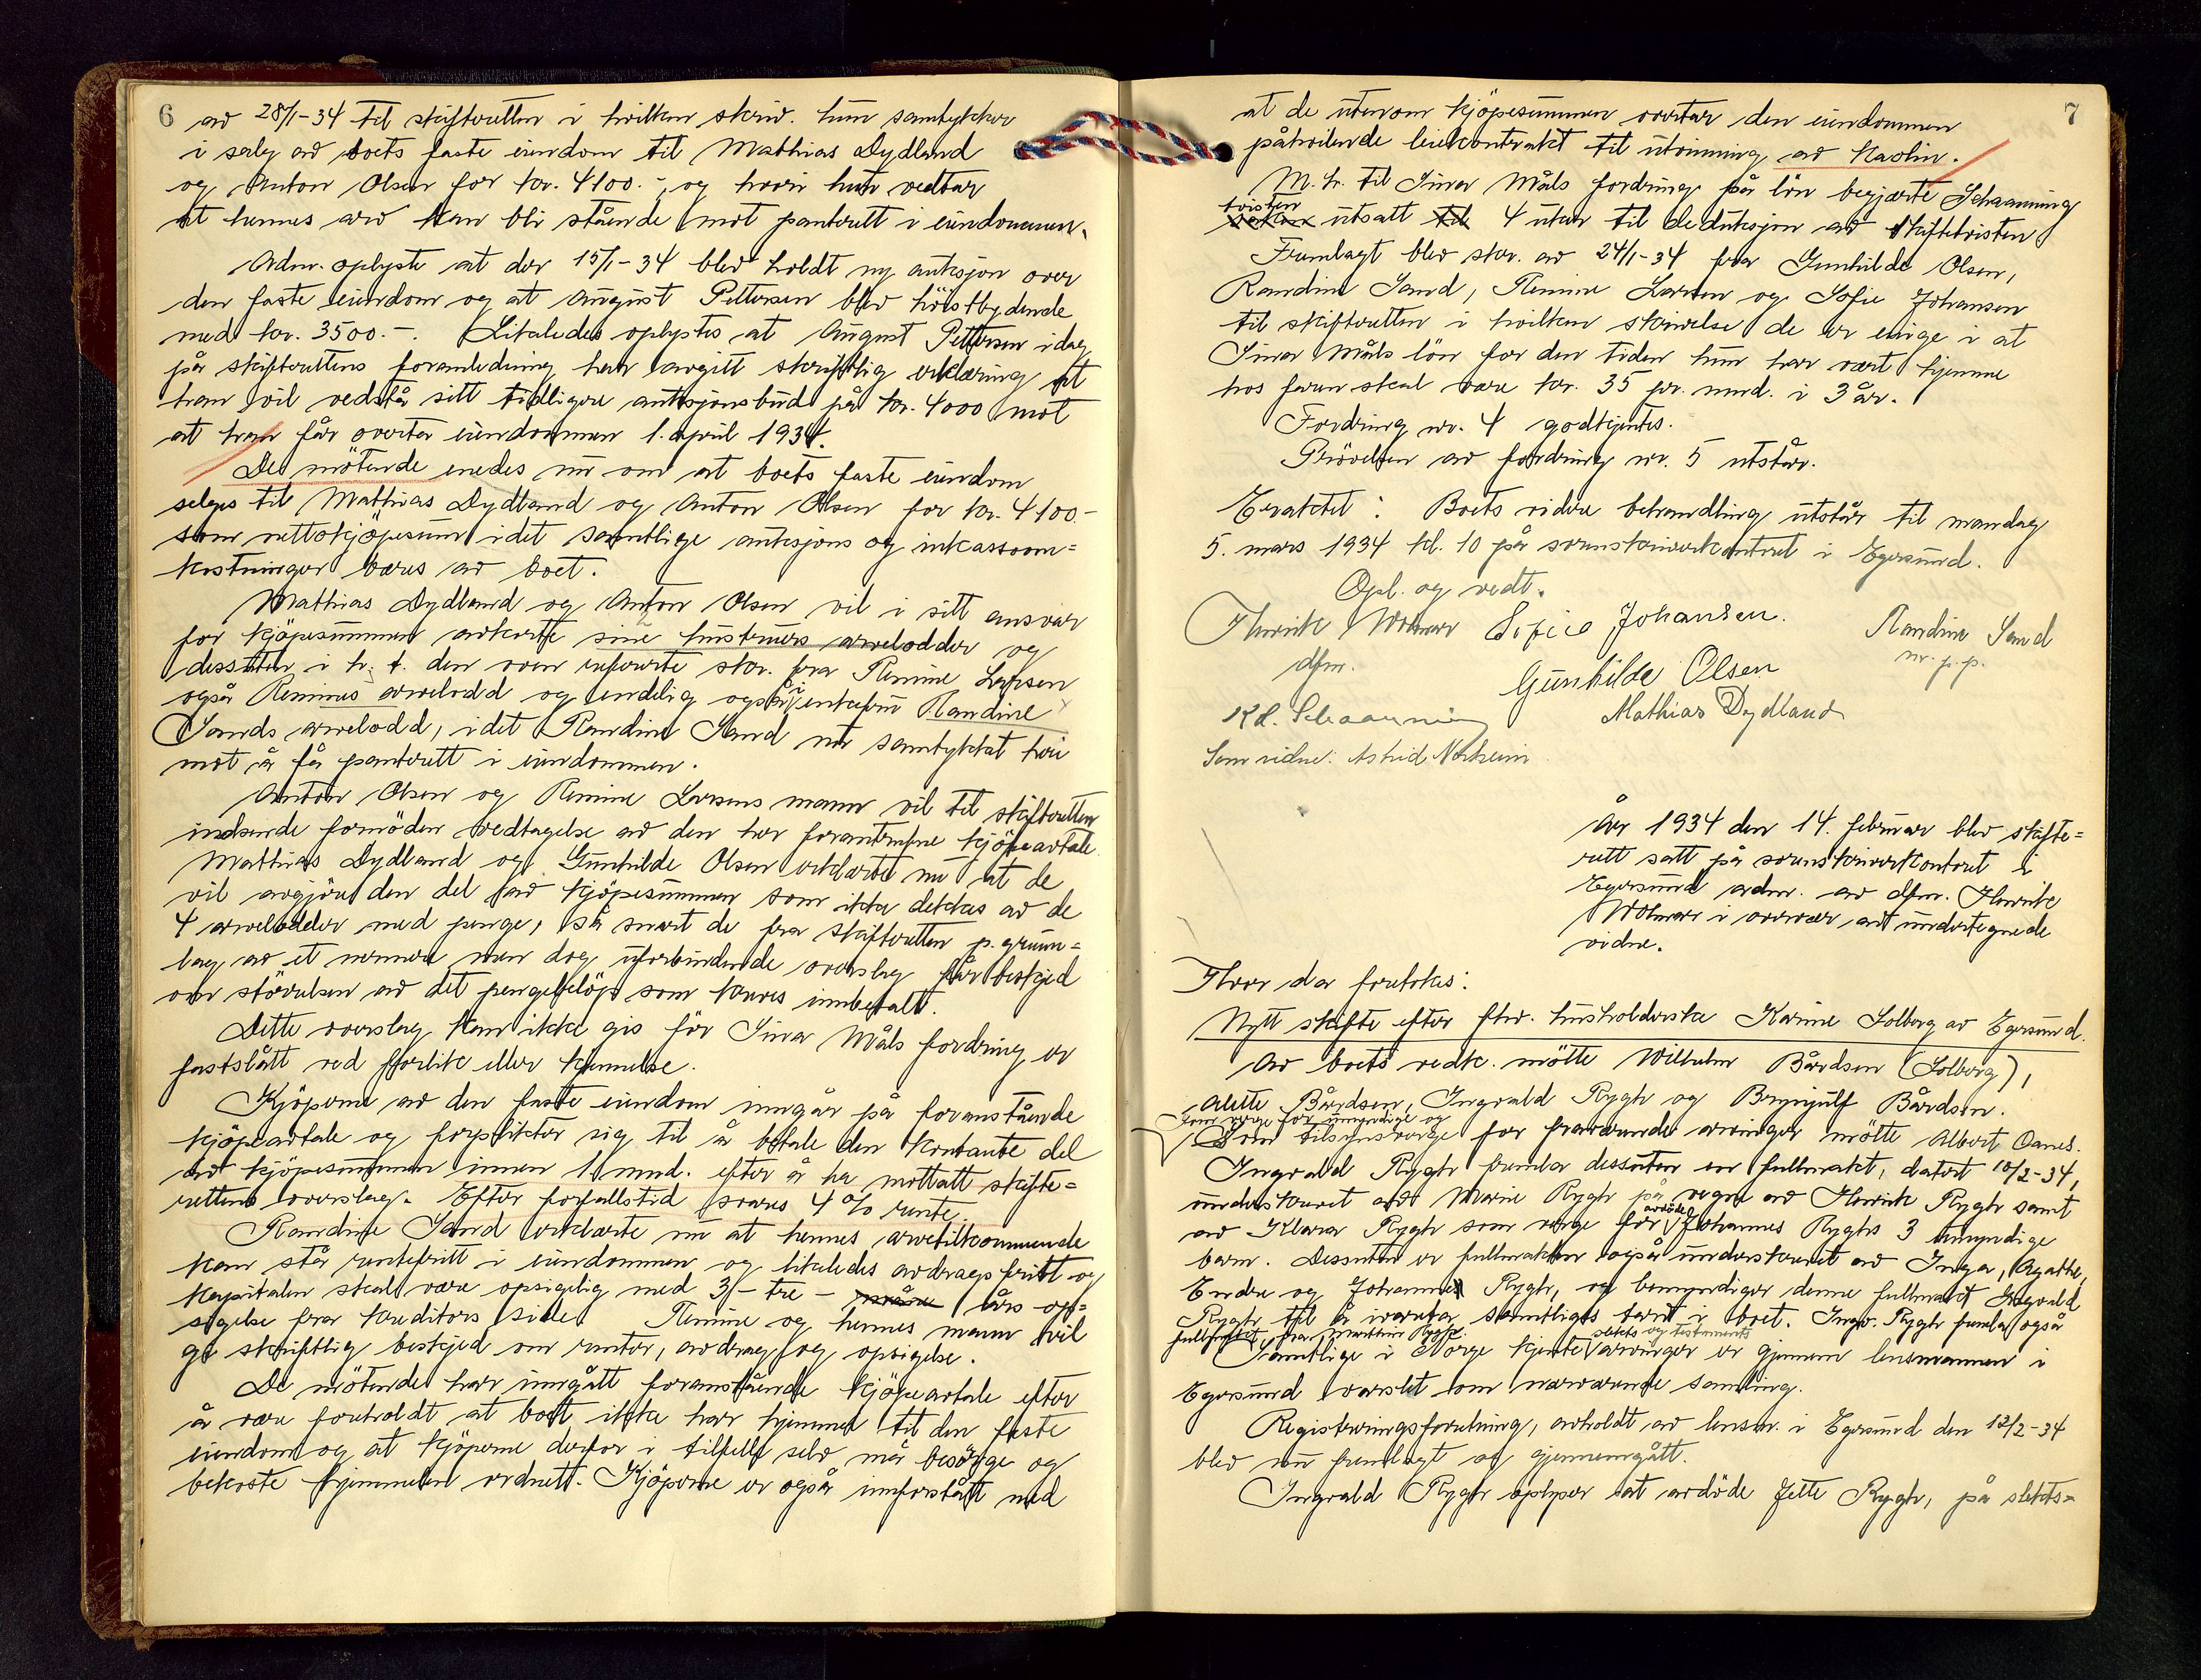 6
av 28/1-34 til skifteretten i hvilken skriv. hun samtykker
i salg av boets faste eiendom til Mathias Dydland
og Anton Olsen for kr. 4100.-, og hvori hun vedtar
at hennes arv kan bli stående mot panterett i eiendommen.
Adm. oplyste at der 15/1-34 blev holdt ny auksjon over
den faste eiendom og at August Pettersen blev höistbydende
med kr. 3500.-. Likeledes oplystes at August Pettersen idag
på skifterettens foranledning har avgitt skriftlig erklæring at
han vil vedstå sitt tidligere auksjonsbud på kr. 4000 mot
at han får overta eiendommen 1. april 1934.
De mötende enedes nu om at boets faste eiendom
selges til Mathias Dydland og Anton Olsen for kr. 4100.-
som nettokjöpesum idet samtlige auksjons og inkassoom=
kostninger bæres av boet.
Mathias Dydland og Anton Olsen vil i sitt ansvar
for kjöpesummen avkorte sine hustruers arvelodder og
dessuten i h. t. den oven refererte skr. fra Remine Larsen
også Remines arvelodd og endelig også eventuelt Randine
Sands arvelodd, idet Randine Sand nu samtykket heri
mot å få panterett i eiendommen.
Anton Olsen og Remine Larsens mann vil til skifteretten
indsende fornöden vedtagelse av den her foran trufne kjöpeavtale.
Mathias Dydland og Gunhilde Olsen erklærte nu at de
vil avgjöre den del av kjöpesummen som ikke dekkes av de
4 arvelodder med penge, så snart de fra skifteretten p. grunn=
lag av et nærmere men dog uforbindende overslag får beskjed
om störrelsen av det pengebelöp som kreves innbetalt.
Dette overslag kan ikke gis för Sina Måls fordring er
fastslått ved forlik eller kjennelse.
Kjöperne av den faste eiendom inngår på foranstående
kjöpeavtale og forplikter sig til å betale den kontante del
av kjöpesummen innen 1 mnd. efter å ha mottatt skifte=
rettens overslag. Efter forfallstid svares 4 % rente.
Randine Sand erklærte nu at hennes arvetilkommende
kan stå rentefritt i eiendommen og likeledes avdragsfritt og
kapitalen skal være opsigelig med 3 - tre - års op=
sigelse fra kreditors side. Remine og hennes mann vil
gi skriftlig beskjed om renter, avdrag og opsigelse.
De mötende har inngått foranstående kjöpeavtale efter
å være foreholdt at boet ikke har hjemmel til den faste
eiendom og at kjöperne derfor i tilfelle selv må besörge og
bekoste hjemmelen ordnet. Kjöperne er også innforstått med
7
at de utenom kjöpesummen overtar den eiendommen
påhvilende leiekontrakt til utvinning av kaolin.
M. h. til Sina Måls fordring på lön begjærte Schaanning
tvisten
utsatt til 4 uker til deduksjon av skiftetvisten.
Fremlagt blev skr. av 24/1-34 fra Gunhilde Olsen,
Randine Sand, Remine Larsen og Sofie Johansen
til skifteretten i hvilken skrivelse de er enige i at
Sina Måls lön for den tiden hun har vært hjemme
hos faren skal være kr. 35 pr. mnd. i 3 år.
Fordring nr. 4 godkjentes.
Prövelsen av fordring nr. 5 utstår.
Eragtet: Boets videre behandling utstår til mandag
5. mars 1934 kl. 10 på sorenskriverkontoret i Egersund.
Opl. og vedt.
Henrik Wolmar Sofie Johansen. Randine Sand
dfm. m. p. p.
Gunhilde Olsen
Kr. Schaanning Mathias Dydland
Som vidne: Astrid Norheim
År 1934 den 14. februar blev skifte=
rett satt på sorenskriverkontoret i
Egersund adm. av dfm. Henrik
Wolmar i overvær av undertegnede
vidne.
Hvor da foretokes:
Nytt skifte efter fhv. husholderske Karine Solberg av Egersund.
Av boets vedk. mötte Wilhelm Bårdsen (Solberg),
Alette Bårdsen, Ingvald Rygh og Brynjulf Bårdsen.
Som verge for umyndige og
Som tilsynsverge for fraværende arvinger mötte Albert Oanes.
Ingvald Rygh fremla dessuten en fullmakt, datert 10/2-34,
underskrevet av Marie Rygh på vegne av Henrik Rygh samt
avdöde
av Klara Rygh som verge for Johannes Ryghs 3 umyndige
barn. Dessuten er fullmakten også underskrevet av Inga, Agathe,
Endre og Johannes Rygh, og bemyndiger denne fullmakt Ingvald
Rygh til å ivareta samtliges tarv i boet. Ingv. Rygh fremla også
fullmakt fra Marthin Rygh. slekts og testaments
Samtlige i Norge kjente arvinger er gjennem lensmannen i
Egersund varslet om nærværende samling.
Registreringsforretning, avholdt av lensm. i Egersund den 12/2-34
blev nu fremlagt og gjennemgått.
Ingvald Rygh oplyser at avdöde Jette Rygh, på slekts=